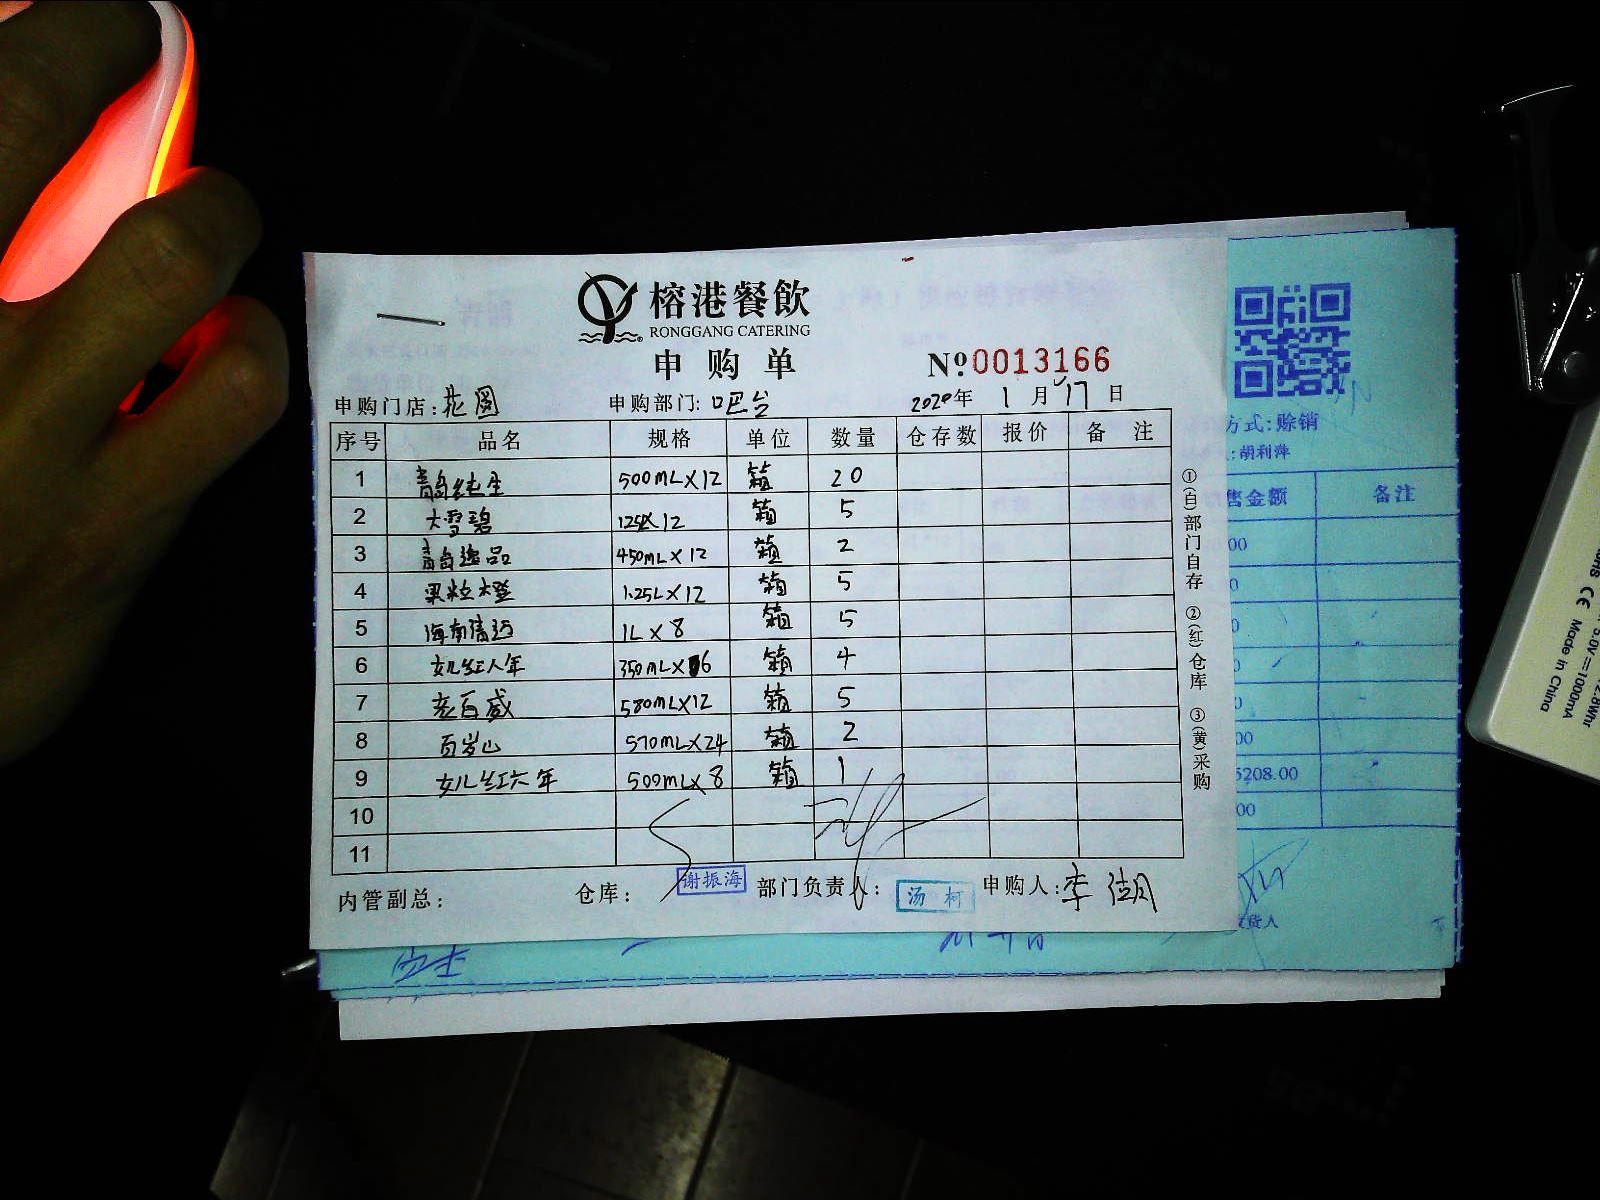 榕港餐飲
RONGGANG CATERING
申购单
№ 0013166
申购门店: 花园 申购部门: 吧台 2020年 1月17日
序号 品名 规格 单位 数量 仓存数 报价 备注
1 青岛纯生 500mL×12 箱 20
2 大雪碧 125L×12 箱 5
3 青岛逸品 450mL×12 箱 2
4 果粒橙 1.25L×12 箱 5
5 海南清 1L×8 箱 5
6 女儿红八年 350mL×6 箱 4
7 老百威 580mL×12 箱 5
8 百岁山 570mL×24 箱 2
9 女儿红六年 500mL×8 箱 1
10
11
内管副总: 仓库: 谢振海 部门负责人: 汤柯 申购人: 李
①(白)部门自存 ②(红)仓库 ③(黄)采购
方式:赊销
:胡利萍
售金额 备注
00
5208.00
00
货人
Made in China
5.0V⎓1000mA